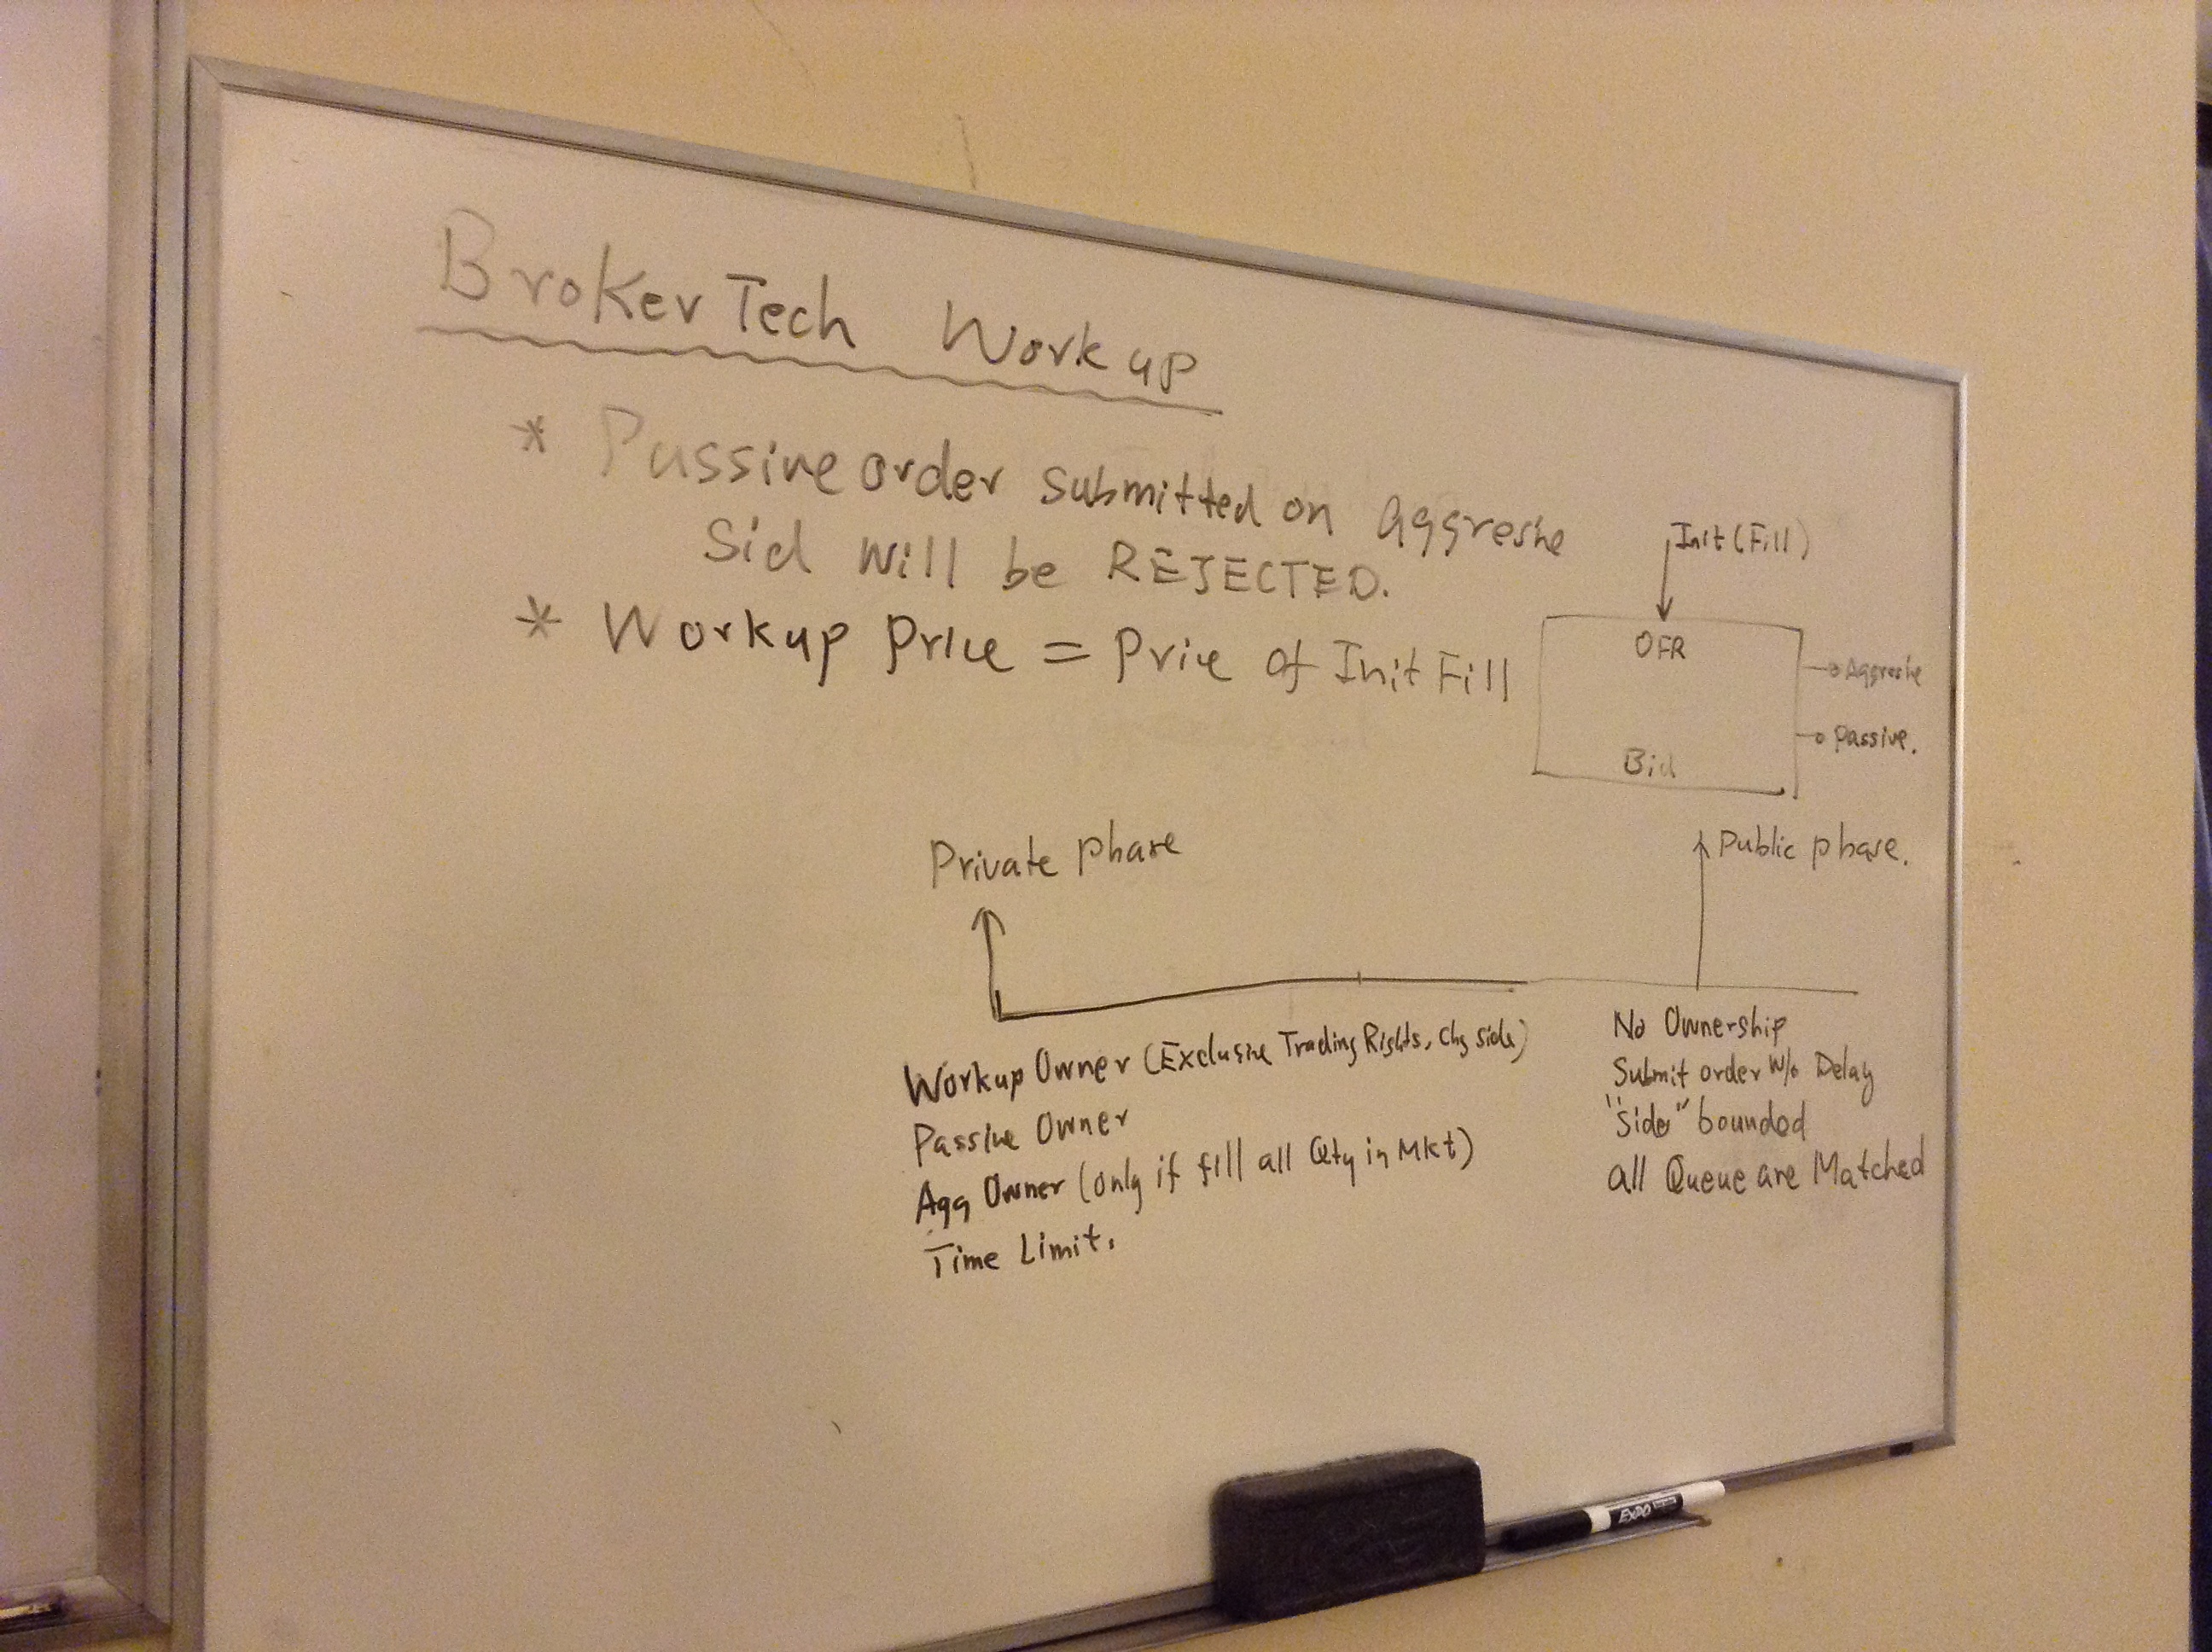 BrokerTech Workup
* Passive order submitted on aggressive
Sid will be REJECTED.
* Workup Price = Price of Init Fill
Init (Fill)
OFR
Aggressive
Passive.
Bid
Private phase
Public phase.
Workup Owner (Exclusive Trading Rights, Chg side)
Passive Owner
Agg Owner (only if fill all Qty in Mkt)
Time Limit.
No Ownership
Submit order w/o Delay
"side" bounded
all Queue are Matched
EXPO